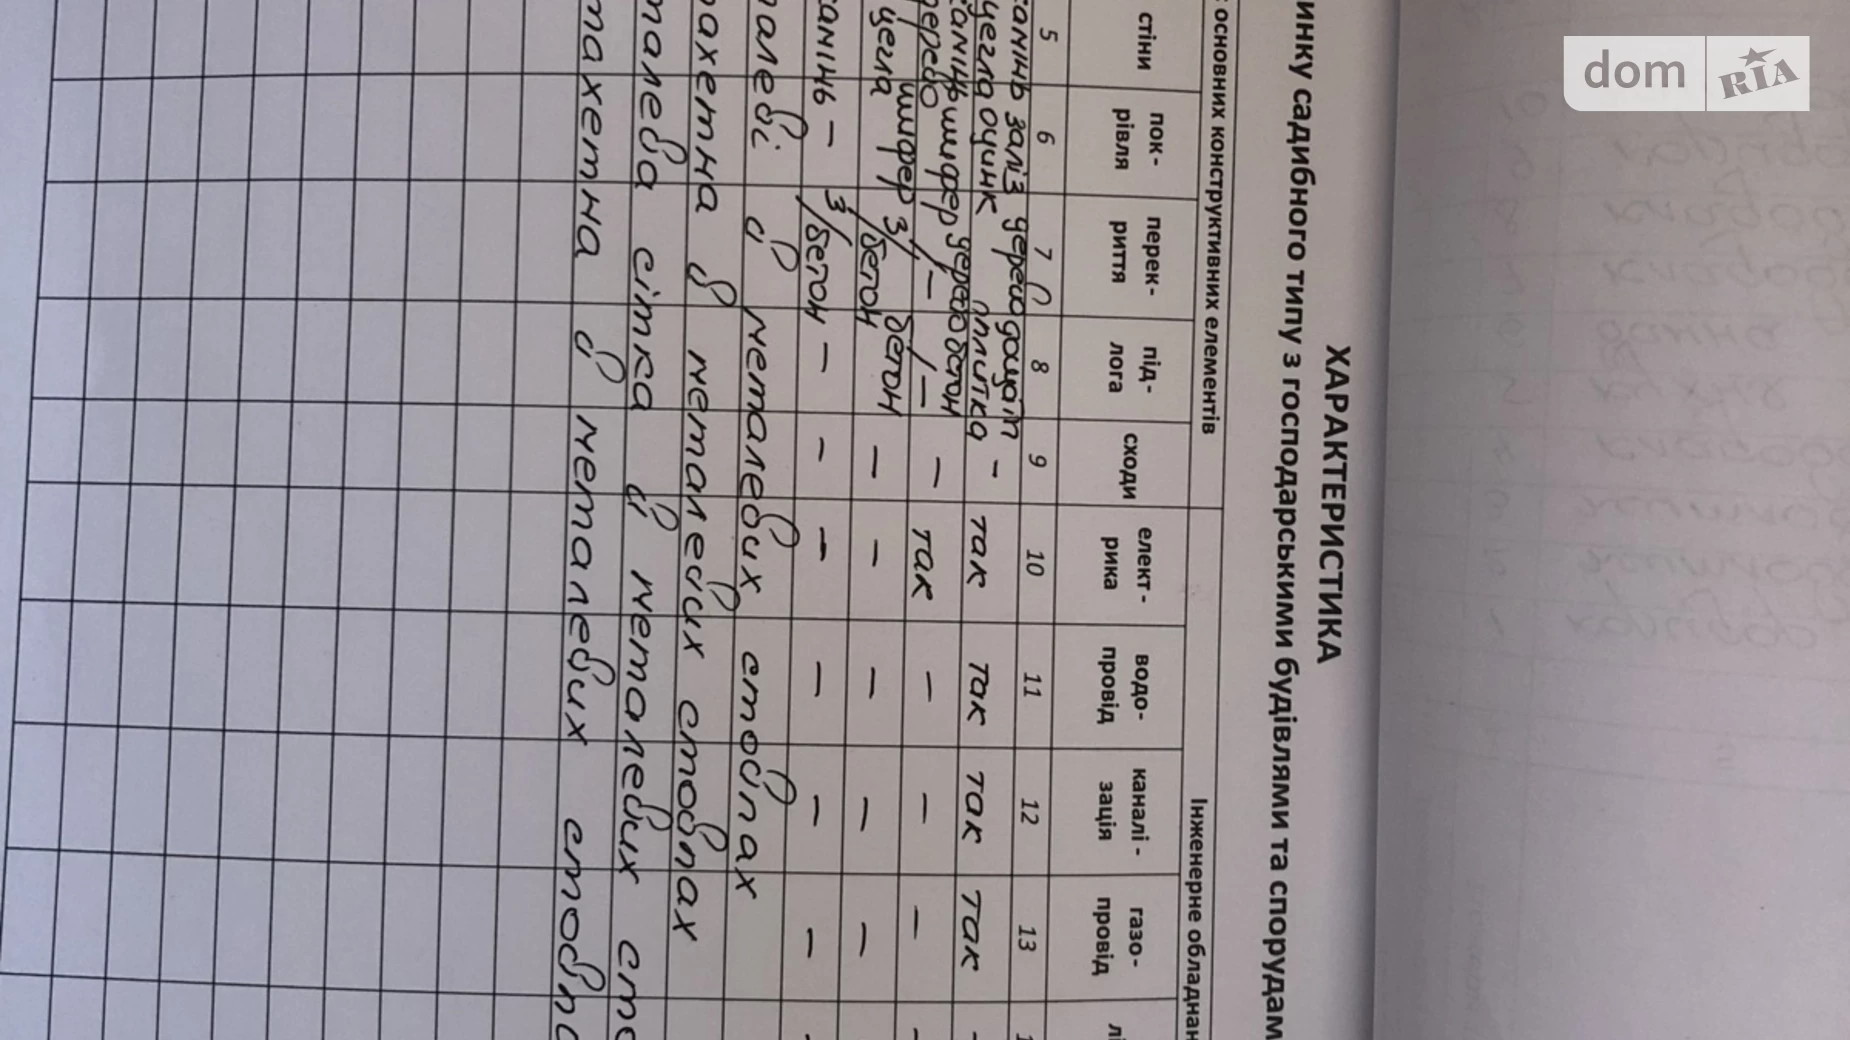 dom RIA
ХАРАКТЕРИСТИКА
инку садибного типу з господарськими будівлями та спорудам
основних конструктивних елементів
Інженерне обладнан
стіни
пок-
рівля
перек-
риття
під-
лога
сходи
елект-
рика
водо-
провід
каналі-
зація
газо-
провід
лі
5 6 7 8 9 10 11 12 13 1
камінь заліз дерево дощ
цегла оцинк плитка - так так так так -
камінь шифер дерево бетон
дерево -/- -/- - так - - -
шифер з/бетон бетон
цегла - - - - -
камінь - з/бетон - - - - - -
металеві в металевих стовпах
шахетна в металевих стовпах
металева сітка в металевих сто
штахетна в металевих стовпа